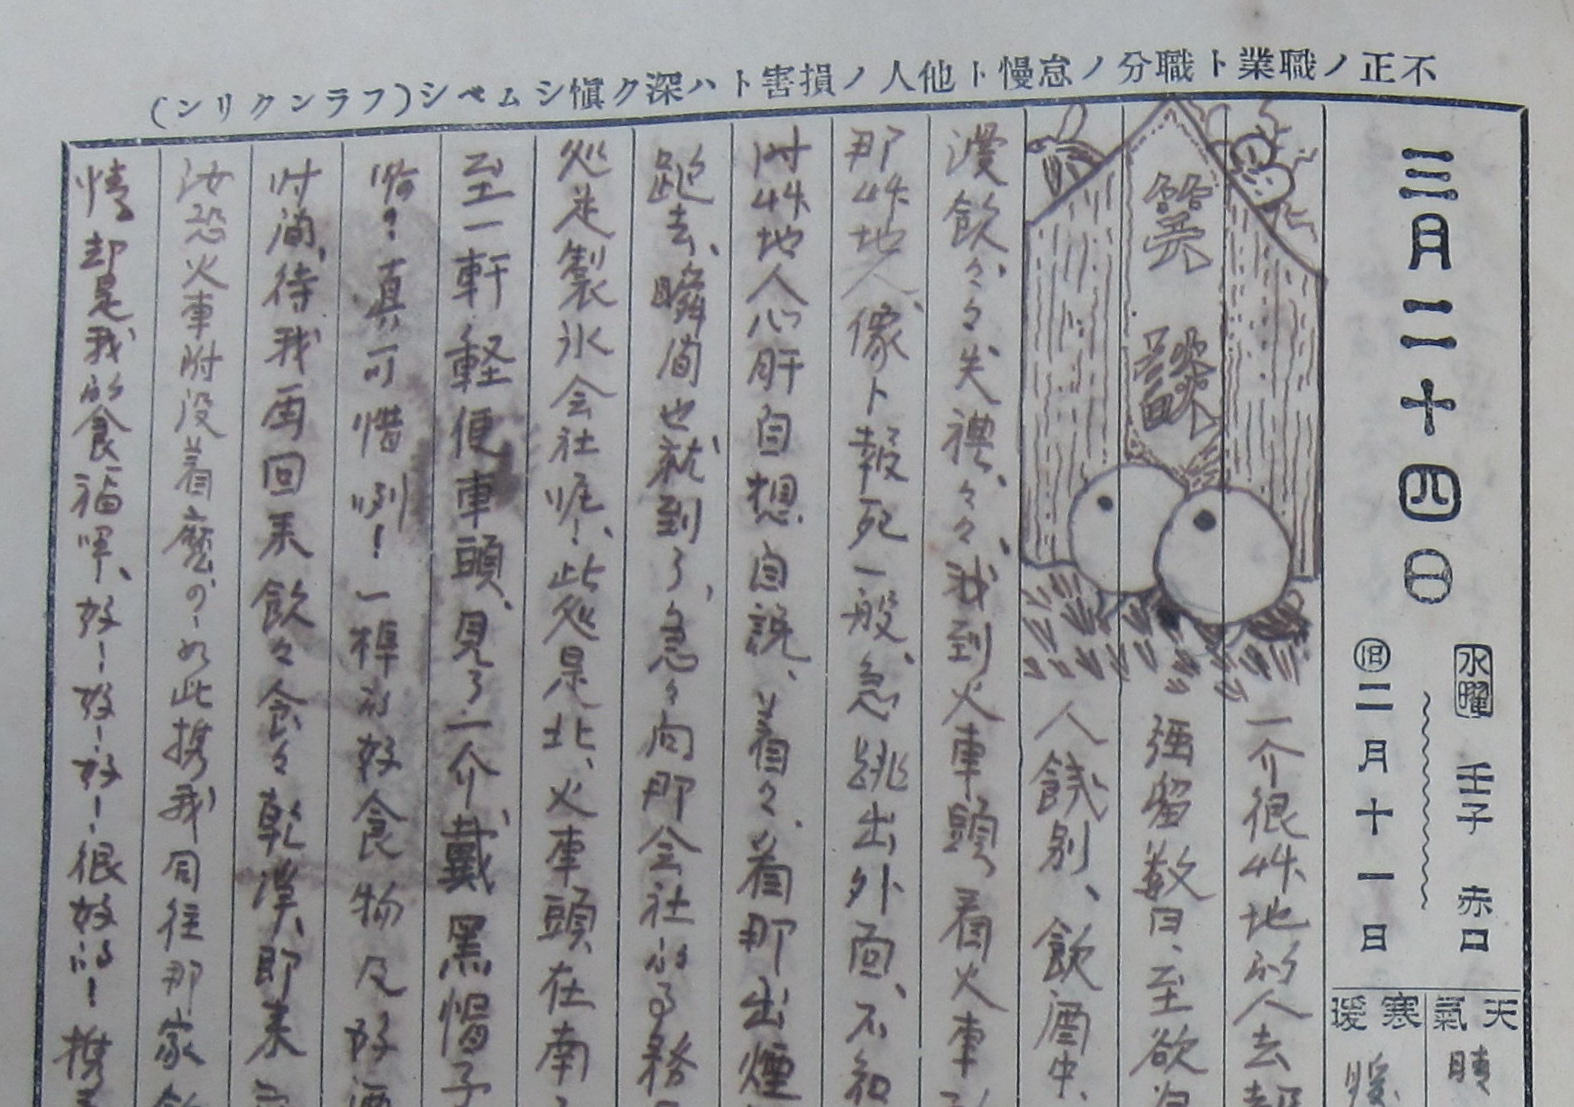 不正ノ職業ト職分ノ怠慢ト他人ノ損害トハ深ク愼シムベシ(フランクリン)
三月二十四日
水曜 壬子 赤口
旧 二月十一日
天氣 寒暖
晴 暖
一介很艸地的人去
强留数日、至欲
人餞别、飲酒中、
漫飲々々失礼々々、我到火車頭、看火車
那艸地人、像卜報死一般、急跳出外面、不知
艸地人心肝自想、自説、着々々、看那出煙
跑去、瞬間也就到了、急々向那会社的
処是製氷会社呢!、此処是北、火車頭、在南
至一軒、軽便車頭、見了一介、戴黑帽子
真可惜 一棹的好食物及好酒
时间、待我再回来飲々食々乾渫、即来
汝恐火車附没着麽の、如此携我同往那家
情却是我的食福喔、好!好!好!很好的!携